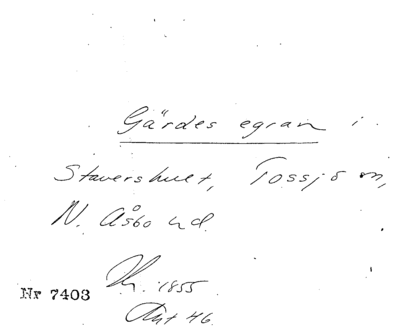 Gärdes egran i
Stavershult, Tossjö sn,
N. Åsbo hd.
1855
Nr 7403
46